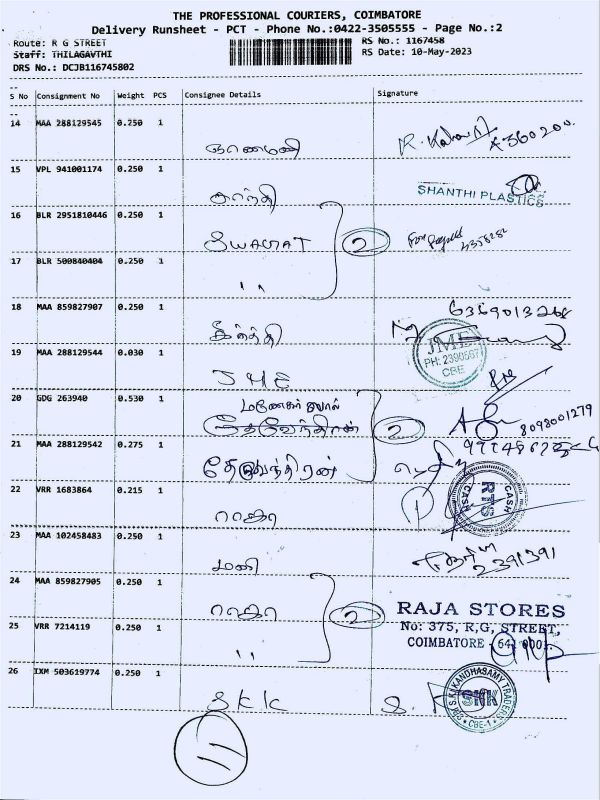 THE PROFESSIONAL COURIERS, COIMBATORE
Delivery Runsheet - PCT - Phone No.:0422-3505555 - Page No.:2
Route: R G STREET RS No.: 1167458
Staff: THILAGAVTHI RS Date: 10-May-2023
DRS No.: DCJB116745802
S No Consignment No Weight PCS Consignee Details Signature
14 MAA 288129545 0.250 1
ஞானமணி
15 VPL 941001174 0.250 1
சாந்தி SHANTHI PLASTICS
16 BLR 2951810446 0.250 1
SWAGAT 2
17 BLR 500840404 0.250 1
"
18 MAA 859827907 0.250 1
கீர்த்தி
19 MAA 288129544 0.030 1
JME JME
PH: 2390567
CBE
20 GDG 263940 0.530 1
2 8098001279
21 MAA 288129542 0.275 1
22 VRR 1683864 0.215 1
ராஜா CASH RTS CASH
23 MAA 102458483 0.250 1
மணி 2391391
24 MAA 859827905 0.250 1
ராஜா 2 RAJA STORES
No: 375, R,G, STREET,
COIMBATORE - 641 0001.
25 VRR 7214119 0.250 1
"
26 IXM 503619774 0.250 1
SKK SKK
SRI S.K. KANDHASAMY TRADERS
CBE-1
11